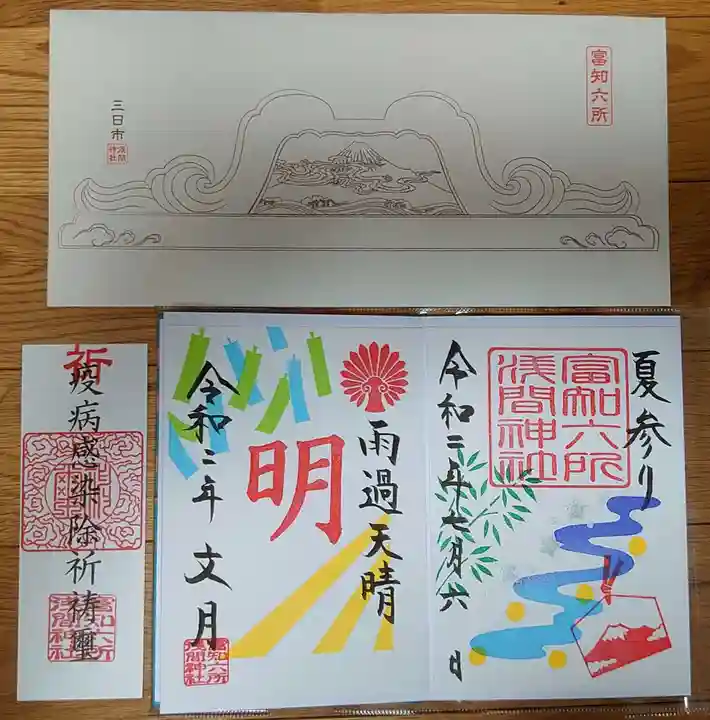 富知六所
三日市
浅間
神社
夏参り
富知六所
浅間神社
令和二年七月六日
雨過天晴
明
令和二年 文月
富知六所
浅間神社
祈
疫病感染除祈祷璽
富知六所
浅間神社